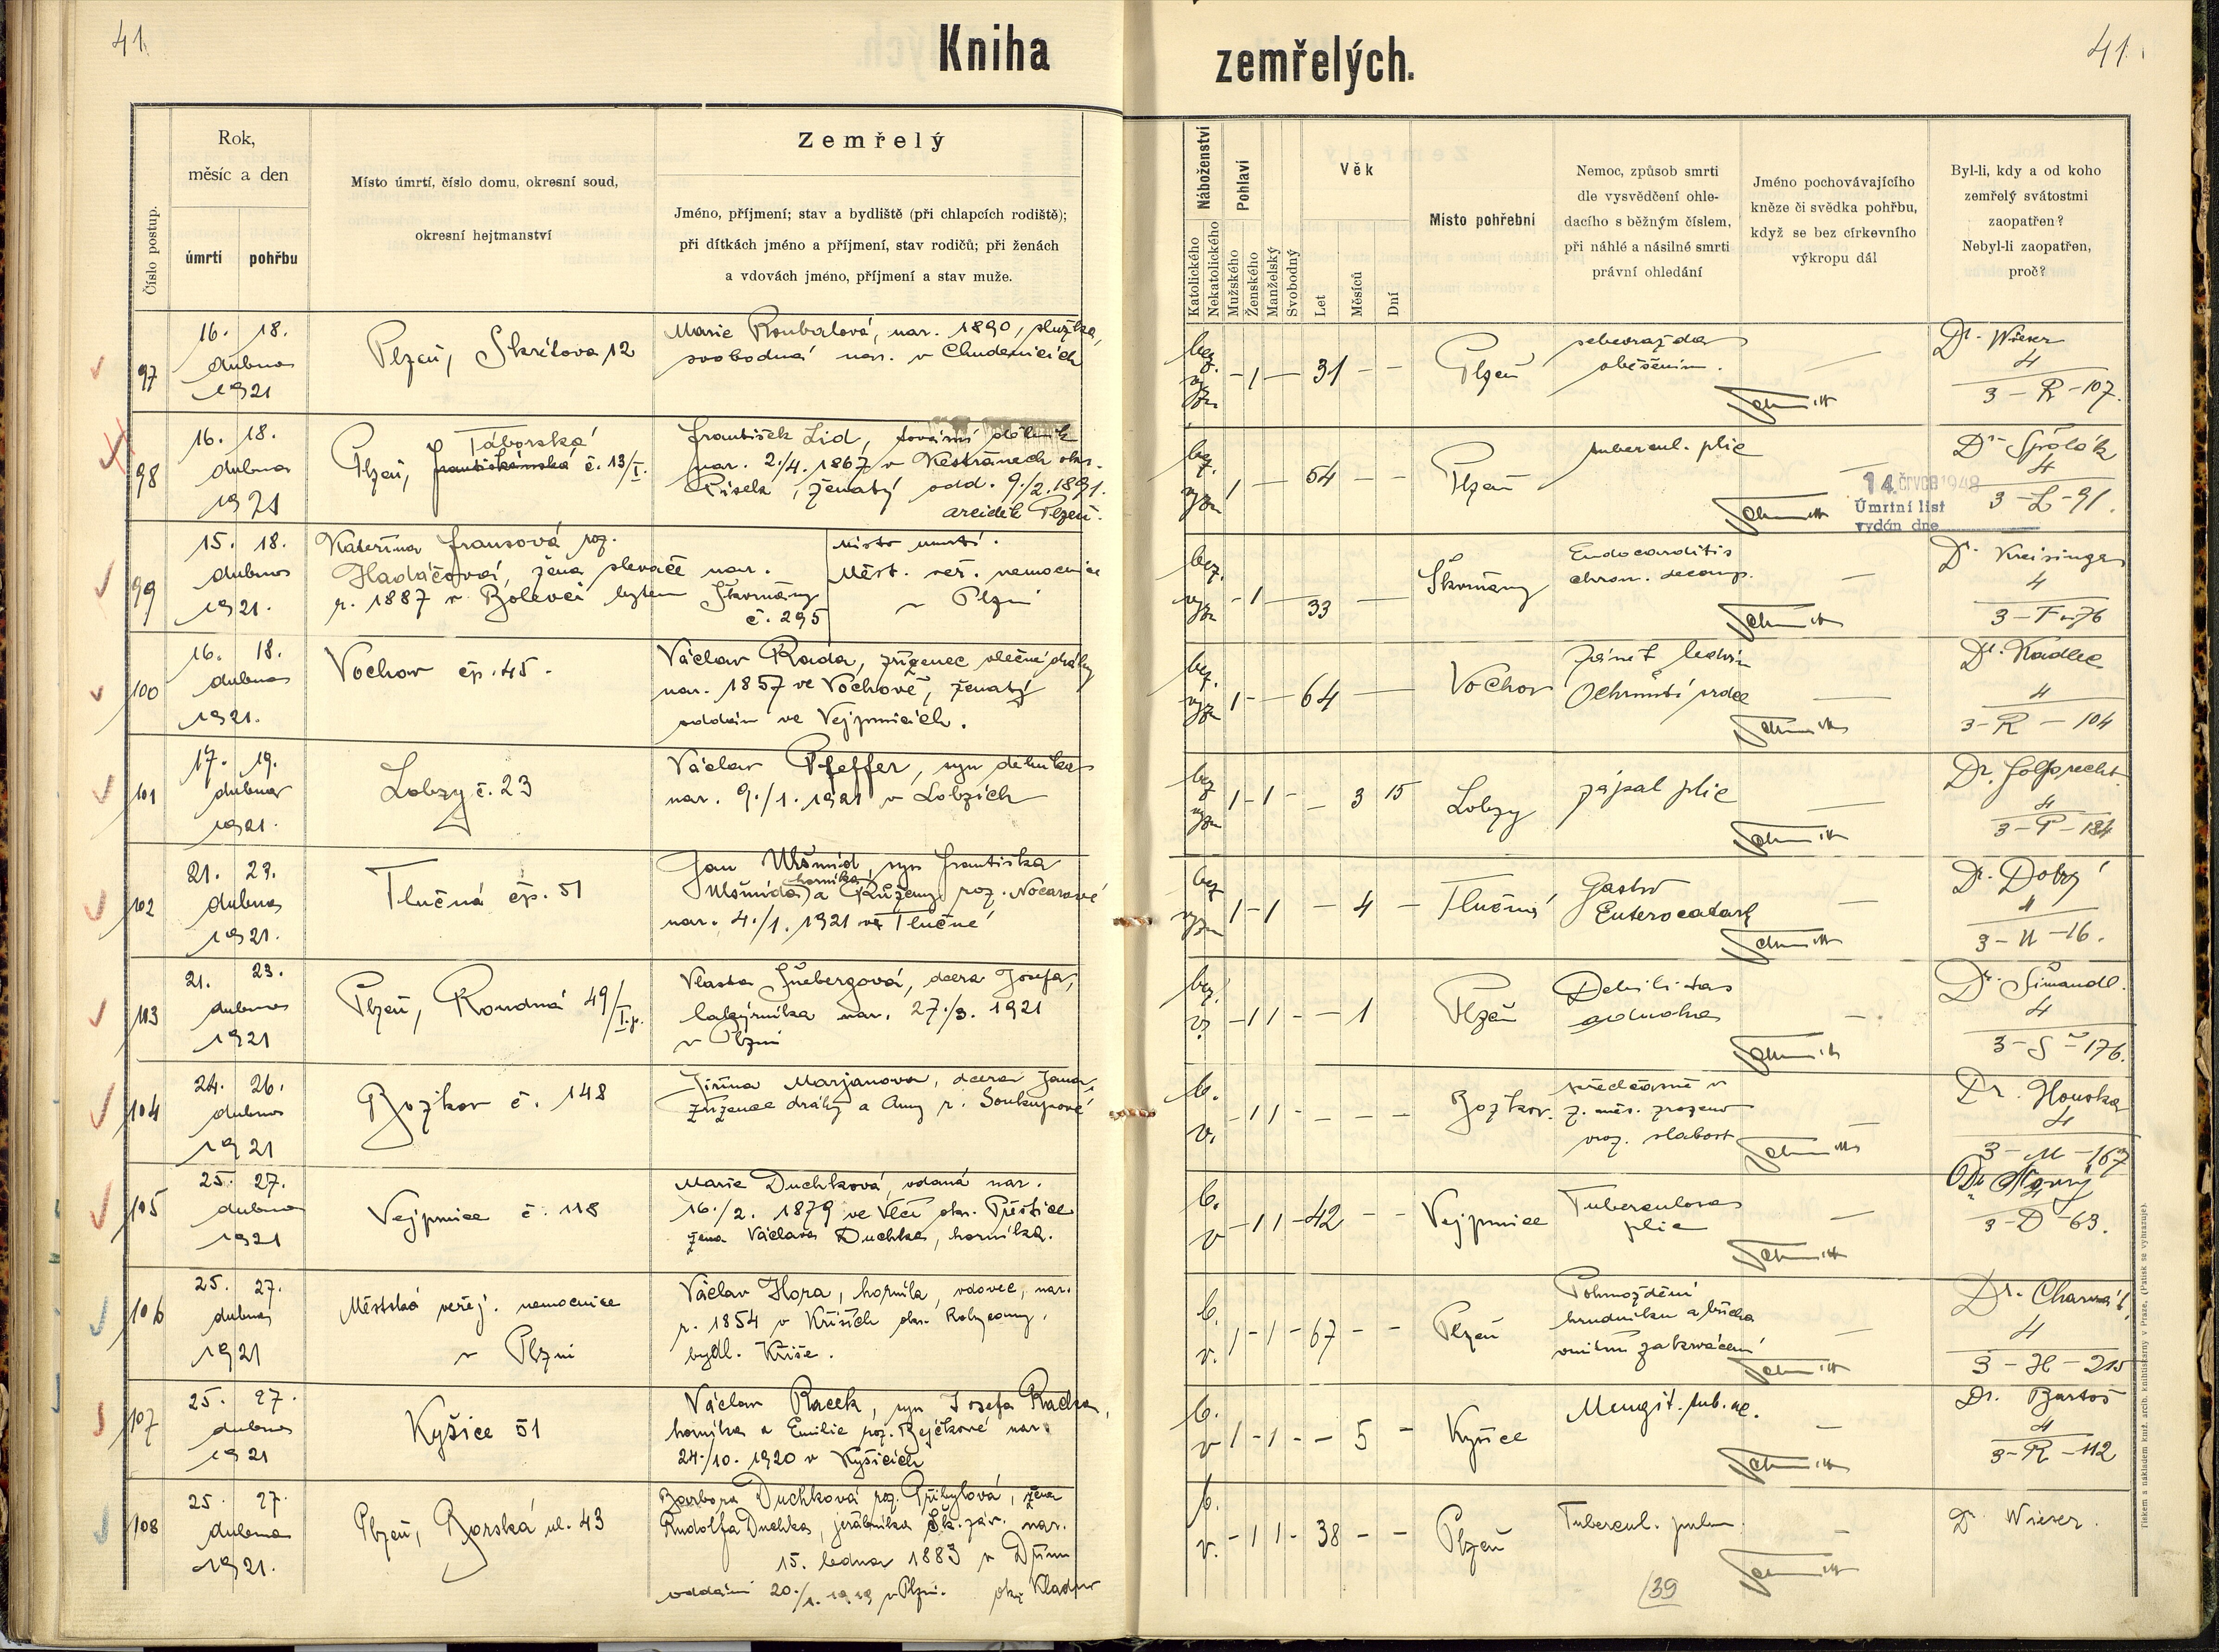 41
Kniha
zemřelých.
41
Číslo postup.
Rok,
měsíc a den
úmrtí
pohřbu
Místo úmrtí, číslo domu, okresní soud,
okresní hejtmanství
Zemřelý
Jméno, příjmení; stav a bydliště (při chlapcích rodiště);
při dítkách jméno a příjmení, stav rodičů; při ženách
a vdovách jméno, příjmení a stav muže.
Náboženství
Katolického
Nekatolického
Pohlaví
Mužského
Ženského
Manželský
Svobodný
Věk
Let
Měsíců
Dní
Místo pohřební
Nemoc, způsob smrti
dle vysvědčení ohle-
dacího s běžným číslem,
při náhlé a násilné smrti
právní ohledání
Jméno pochovávajícího
kněze či svědka pohřbu,
když se bez církevního
výkropu dál
Byl-li, kdy a od koho
zemřelý svátostmi
zaopatřen?
Nebyl-li zaopatřen,
proč?
97
16. 18.
dubna
1921
Plzeň, Skrétova 12
Marie Roubalová, nar. 1890, služka,
svobodná nar. v Chudenicích
bez
vyzn
1
31
Plzeň
sebevražda
oběšením.
Dr. Wieser
4
3-R-107.
98
16. 18.
dubna
1921
Táborská
Plzeň, Františkánská č. 13/I.
František Lid, tovární dělník
nar. 2./4. 1867 v Kestřanech okr.
Písek, ženatý odd. 9./2. 1891.
arciděk Plzeň.
bez.
vyzn
1
54
Plzeň
tubercul. plic
14. ČVCE 1948
Úmrtní list
vydán dne
4
3-L-91.
99
15. 18.
dubna
1921.
Kateřina Fransová roz.
Hadáčová, žena slevače nar.
r. 1887 v Bolevci bytem Škvrňany
č. 295
Místo úmrtí.
Měst. veř. nemocnice
v Plzni
bez.
vyzn
1
33
Škvrňany
Endocarditis
chron. decomp.
Dr. Kreisinger
4
3-F-76
100
16. 18.
dubna
1921.
Vochov čp. 45.
Václav Rada, zřízenec vlečné dráhy
nar. 1857 ve Vochově, ženatý
oddán ve Vejprnicích.
bez.
vyzn
1
64
Vochov
Zánět ledvin
Ochrnutí srdce
Dr. Kadlec
4
3-R-104
101
17. 19.
dubna
1921.
Lobzy č. 23
Václav Pfeffer, syn dělníka
nar. 9./1. 1921 v Lobzích
bez
vyzn
1 1
3 15
Lobzy
zápal plic
4
3-P-184
102
21. 23.
dubna
1921.
Tlučná čp. 51
Jan Ulšmíd, syn Františka
horníka
Ulšmída, a Růženy roz. Nocarové
nar. 4./1. 1921 v Tlučné
bez
vyzn
1 1
4
Tlučná
Gastro
Enterocatarh
Dr. Dobrý
4
3-U-16.
103
21. 23.
dubna
1921
Plzeň, Roudná 49/I.p.
Vlasta Šnebergová, dcera Josefa,
lakýrníka nar. 27./3. 1921
v Plzni
bez.
v.
1 1
1
Plzeň
Debilitas
Dr. Šimandl.
4
3-Š-176.
104
24. 26.
dubna
1921
Božkov č. 148
Jiřina Marjanova, dcera Jana,
zřízence dráhy a Anny r. Soukupové
b.
v.
1 1
Božkov.
předčasně v
7. měs. zrozena
vroz. slabost
Dr. Houska
4
3-M-167
105
25. 27.
dubna
1921
Vejprnice č. 118
Marie Duchková, vdaná nar.
16./2. 1879 ve Vlčí okr. Přeštice
žena Václava Duchka, horníka.
b.
v
1 1
42
Vejprnice
Tuberculosa
plic
4
3-D-63.
106
25. 27.
dubna
1921
Městská veřej. nemocnice
v Plzni
Václav Hora, horník, vdovec, nar.
r. 1854 v Kříších okr. Rokycany,
bydl. Kříše.
b.
v.
1 1
67
Plzeň
Pohmoždění
hrudníku a břicha
vnitřní zakrvácení
Dr. Charvát
4
3-H-215
107
25. 27.
dubna
1921
Kyšice 51
Václav Racek, syn Josefa Racka,
horníka a Emilie roz. Rejčkové nar.
24./10. 1920 v Kyšicích
b.
v
1 1
5
Kyšice
Mengit. tub.
Dr. Bartoš
4
3-R-112
108
25. 27.
dubna
1921.
Plzeň, Borská ul. 43
Barbora Duchková roz. Přibylová, žena
Rudolfa Duchka, jeřábníka Šk. záv. nar.
15. ledna 1883 v Dříni
oddáni 20./1. 1919 v Plzni. okr. Kladno
b.
v.
1 1
38
Plzeň
Tubercul. pulm.
Dr. Wieser.
39
Tiskem a nákladem kníž. arcib. knihtiskárny v Praze. (Patisk se vyhrazuje).